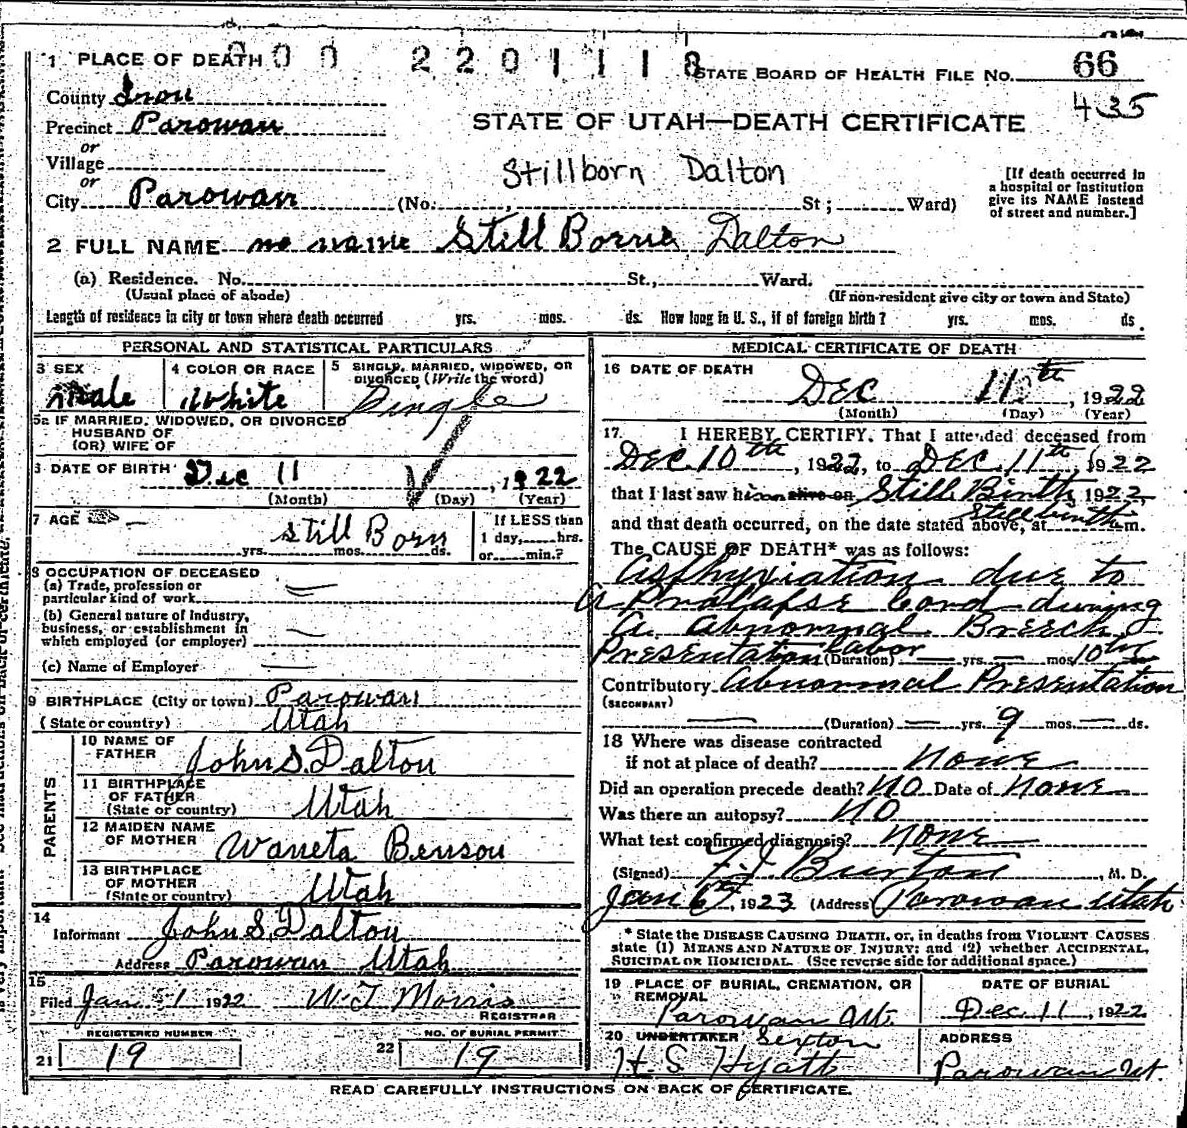 1 PLACE OF DEATH 0 0 0 2 2 0 1 1 1 8 STATE BOARD OF HEALTH FILE NO. 66
County Iron 435
Precinct Parowan STATE OF UTAH—DEATH CERTIFICATE
or
Village
or
Stillborn Dalton
City Parowan (No. , St ; Ward)
[If death occurred in
a hospital or institution
give its NAME instead
of street and number.]
2 FULL NAME no name Still Borne Dalton
(a) Residence. No. St., Ward.
(Usual place of abode) (If non-resident give city or town and State)
Length of residence in city or town where death occurred yrs. mos. ds. How long in U. S., if of foreign birth? yrs. mos. ds.
PERSONAL AND STATISTICAL PARTICULARS
3 SEX
Male
4 COLOR OR RACE
White
5 SINGLE, MARRIED, WIDOWED, OR
DIVORCED (Write the word)
Single
5a IF MARRIED, WIDOWED, OR DIVORCED
HUSBAND OF
(OR) WIFE OF
DATE OF BIRTH Dec 11, 1922
(Month) (Day) (Year)
7 AGE still Born
yrs. mos. ds.
If LESS than
1 day, hrs.
or min.?
8 OCCUPATION OF DECEASED
(a) Trade, profession or
particular kind of work
(b) General nature of Industry,
business, or establishment in
which employed (or employer)
(c) Name of Employer
9 BIRTHPLACE (City or town) Parowan
(State or country) Utah
PARENTS
10 NAME OF
FATHER John S. Dalton
11 BIRTHPLACE
OF FATHER
(State or country) Utah
12 MAIDEN NAME
OF MOTHER Waneta Benson
13 BIRTHPLACE
OF MOTHER
(State or country) Utah
14
Informant John S. Dalton
Address Parowan Utah
15
Filed Jan 1 1922 W T Morris
REGISTRAR
REGISTERED NUMBER NO. OF BURIAL PERMIT
21 19 22 19
MEDICAL CERTIFICATE OF DEATH
16 DATE OF DEATH
Dec 11th, 1922
(Month) (Day) (Year)
17. I HEREBY CERTIFY, That I attended deceased from
Dec. 10th, 1922, to Dec. 11th, 1922
that I last saw him alive on Still Birth, 1922,
and that death occurred, on the date stated above, at Stillbirth m.
The CAUSE OF DEATH* was as follows:
Asphyxiation due to
A Prolapse Cord during
A. Abnormal Breech
Presentation labor (Duration) yrs. mos. 10
Contributory Abnormal Presentation
(SECONDARY)
(Duration) yrs. 9 mos. ds.
18 Where was disease contracted
if not at place of death? None
Did an operation precede death? No Date of None
Was there an autopsy? No
What test confirmed diagnosis? None
(Signed) Burton, M. D.
Jan 6, 1923 (Address) Parowan Utah
* State the DISEASE CAUSING DEATH, or, in deaths from VIOLENT CAUSES
state (1) MEANS AND NATURE OF INJURY; and (2) whether ACCIDENTAL,
SUICIDAL OR HOMICIDAL. (See reverse side for additional space.)
19 PLACE OF BURIAL, CREMATION, OR
REMOVAL
Parowan Ut.
DATE OF BURIAL
Dec. 11, 1922
20 UNDERTAKER Sexton
H. S Hyatt
ADDRESS
Parowan Ut.
READ CAREFULLY INSTRUCTIONS ON BACK OF CERTIFICATE.